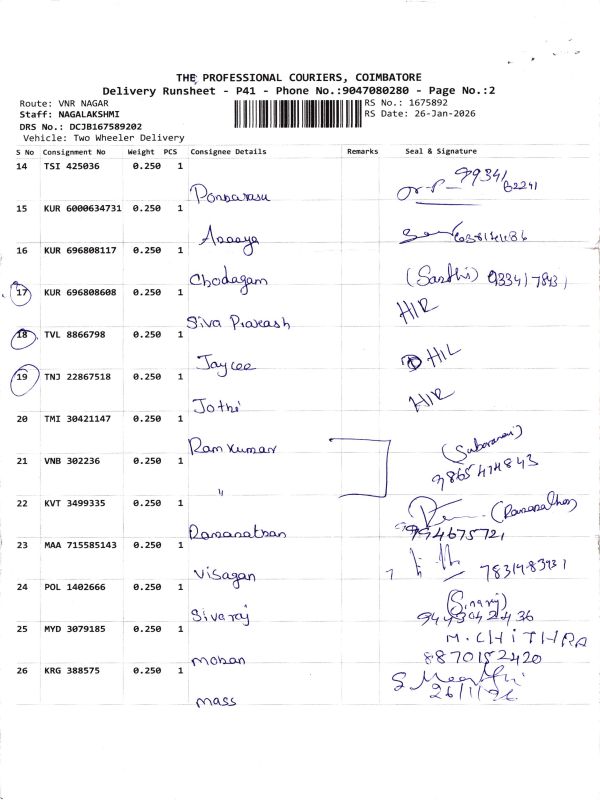 THE PROFESSIONAL COURIERS, COIMBATORE
Delivery Runsheet - P41 - Phone No.:9047080280 - Page No.:2
Route: VNR NAGAR
RS No.: 1675892
Staff: NAGALAKSHMI
RS Date: 26-Jan-2026
DRS No.: DCJB167589202
Vehicle: Two Wheeler Delivery
S No Consignment No Weight PCS Consignee Details Remarks Seal & Signature
14 TSI 425036 0.250 1
Ponnarasu
15 KUR 6000634731 0.250 1
16 KUR 696808117 0.250 1
Chodagam (Sasthi)
17 KUR 696808608 0.250 1
Siva Prakash HIR
18 TVL 8866798 0.250 1
Jaycee HIL
19 TNJ 22867518 0.250 1
Jothi HIR
20 TMI 30421147 0.250 1
Ramkumar
21 VNB 302236 0.250 1
"
9865474843
22 KVT 3499335 0.250 1
Ramanathan 9994675721
23 MAA 715585143 0.250 1
Visagan
24 POL 1402666 0.250 1
Sivaraj (Sivaraj)
9443042436
25 MYD 3079185 0.250 1
M. CHITHRA
mohan 8870152420
26 KRG 388575 0.250 1
26/1/26
mass